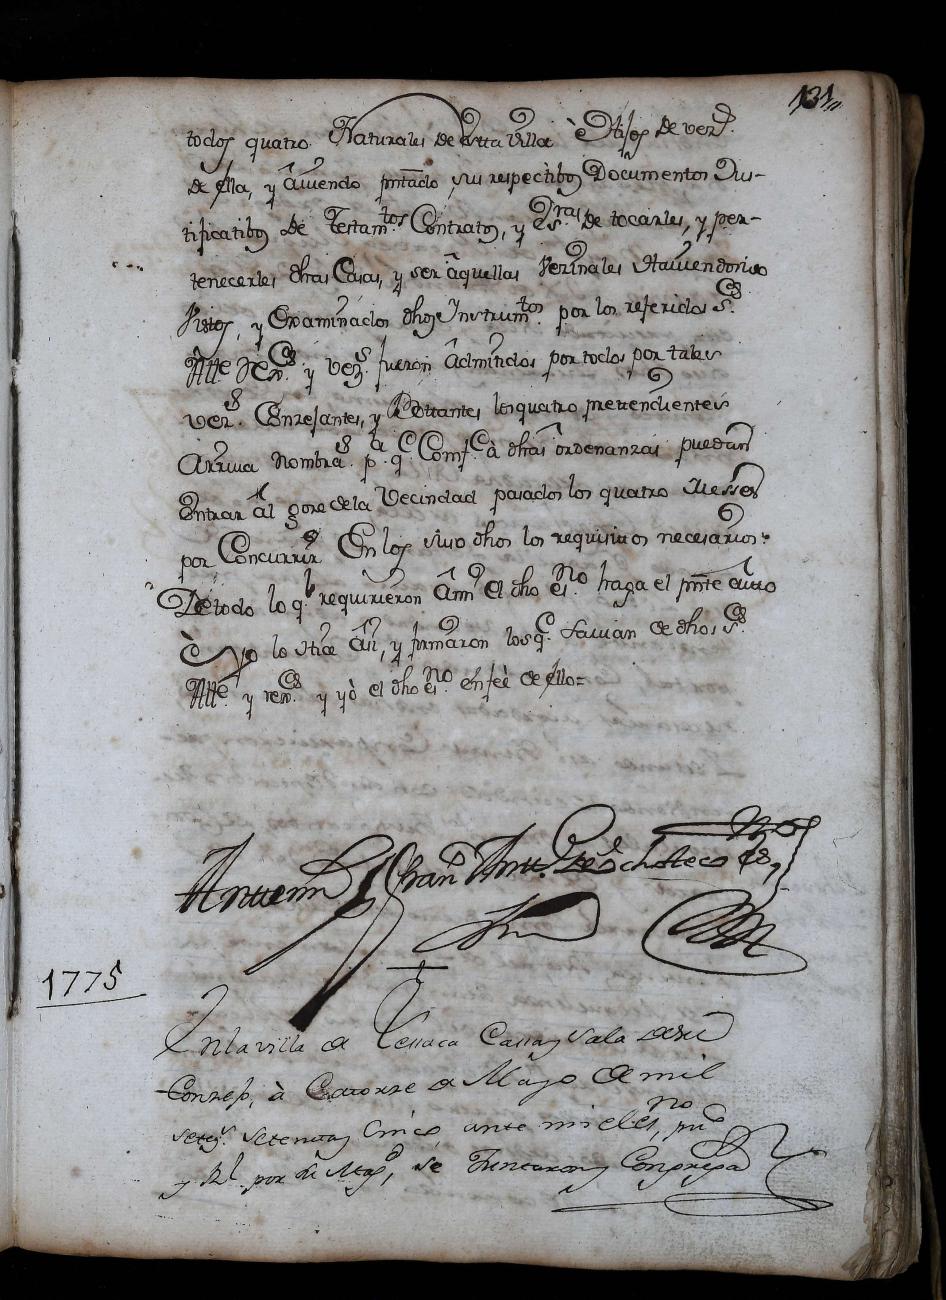 131
todos quatro Naturales de Esta Villa è Hijos de vez.ˢ
de ella, y aviendo pntādo sus respectibos Documentos Jus-
tificatibos de Testam.tos Contratos, y Ess.ras de tocarles, y per-
tenecerles dhas Casas, y ser aquellas Vezinales Haviendose
Vistos, y Examinados dhos Ynstrum.tos por los referidos S.es
Alle. y vez.s fueron admitidos por todos por tales
vez.s Conzejantes, y Vottantes los quatro prettendientes
Arriva nombra.s p.a q.e Comf.e à dhas ordenanzas puedan
Entrar al goze de la Vecindad pasados los quatro Messes
por Concurrir En los suso dhos los requisitos necesarios:
De todo lo q.l requirieron a mi el dho es.no haga el pnte autto
è Yo lo Hize asi, y firmaron los q.e savian de dhos S.es
Alle. y rex.es y yò el dho es.no en feè de ello=
Antemi
1775
En la villa de Lessaca Cassa y Sala de su
Conzejo, à Catorze de Mayo de mil
setez.s setenta y Cinco ante mi el es.no pu.co
y Rl. por su Mag.d, se Juntaron y Congrega